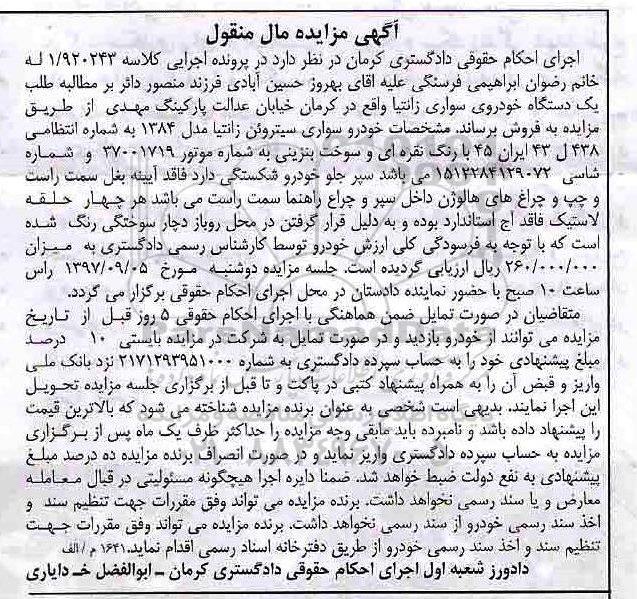 آگهی مزایده مال منقول
اجرای احکام حقوقی دادگستری کرمان در نظر دارد در پرونده اجرایی کلاسه ۱/۹۲۰۲۴۳ له
خانم رضوان ابراهیمی فرسنگی علیه اقای بهروز حسین آبادی فرزند منصور دائر بر مطالبه طلب
یک دستگاه خودروی سواری زانتیا واقع در کرمان خیابان عدالت پارکینگ مهدی از طریق
مزایده به فروش برساند. مشخصات خودرو سواری سیتروئن زانتیا مدل ۱۳۸۴ به شماره انتظامی
۴۳۸ ل ۴۳ ایران ۴۵ با رنگ نقره ای و سوخت بنزینی به شماره موتور ۳۷۰۰۱۷۱۹ و شماره
شاسی ۱۵۱۲۲۸۴۱۲۹۰۷۲ می باشد سپر جلو خودرو شکستگی دارد فاقد آیینه بغل سمت راست
و چپ و چراغ های هالوژن داخل سپر و چراغ راهنما سمت راست می باشد هر چهار حلقه
لاستیک فاقد آج استاندارد بوده و به دلیل قرار گرفتن در محل روباز دچار سوختگی رنگ شده
است که با توجه به فرسودگی کلی ارزش خودرو توسط کارشناس رسمی دادگستری به میزان
۲۶۰/۰۰۰/۰۰۰ ریال ارزیابی گردیده است. جلسه مزایده دوشنبه مورخ ۱۳۹۷/۰۹/۰۵ راس
ساعت ۱۰ صبح با حضور نماینده دادستان در محل اجرای احکام حقوقی برگزار می گردد.
متقاضیان در صورت تمایل ضمن هماهنگی با اجرای احکام حقوقی ۵ روز قبل از تاریخ
مزایده می توانند از خودرو بازدید و در صورت تمایل به شرکت در مزایده بایستی ۱۰ درصد
مبلغ پیشنهادی خود را به حساب سپرده دادگستری به شماره ۲۱۷۱۲۹۳۹۵۱۰۰۰ نزد بانک ملی
واریز و قبض آن را به همراه پیشنهاد کتبی در پاکت و تا قبل از برگزاری جلسه مزایده تحویل
این اجرا نمایند. بدیهی است شخصی به عنوان برنده مزایده شناخته می شود که بالاترین قیمت
را پیشنهاد داده باشد و نامبرده باید مابقی وجه مزایده را حداکثر ظرف یک ماه پس از برگزاری
مزایده به حساب سپرده دادگستری واریز نماید و در صورت انصراف برنده مزایده ده درصد مبلغ
پیشنهادی به نفع دولت ضبط خواهد شد. ضمنا دایره اجرا هیچگونه مسئولیتی در قبال معامله
معارض و یا سند رسمی نخواهد داشت. برنده مزایده می تواند وفق مقررات جهت تنظیم سند و
اخذ سند رسمی خودرو از سند رسمی نخواهد داشت. برنده مزایده می تواند وفق مقررات جهت
تنظیم سند و اخذ سند رسمی خودرو از طریق دفترخانه اسناد رسمی اقدام نماید. ۱۶۴۱ م/الف
دادورز شعبه اول اجرای احکام حقوقی دادگستری کرمان ـ ابوالفضل خـدایاری